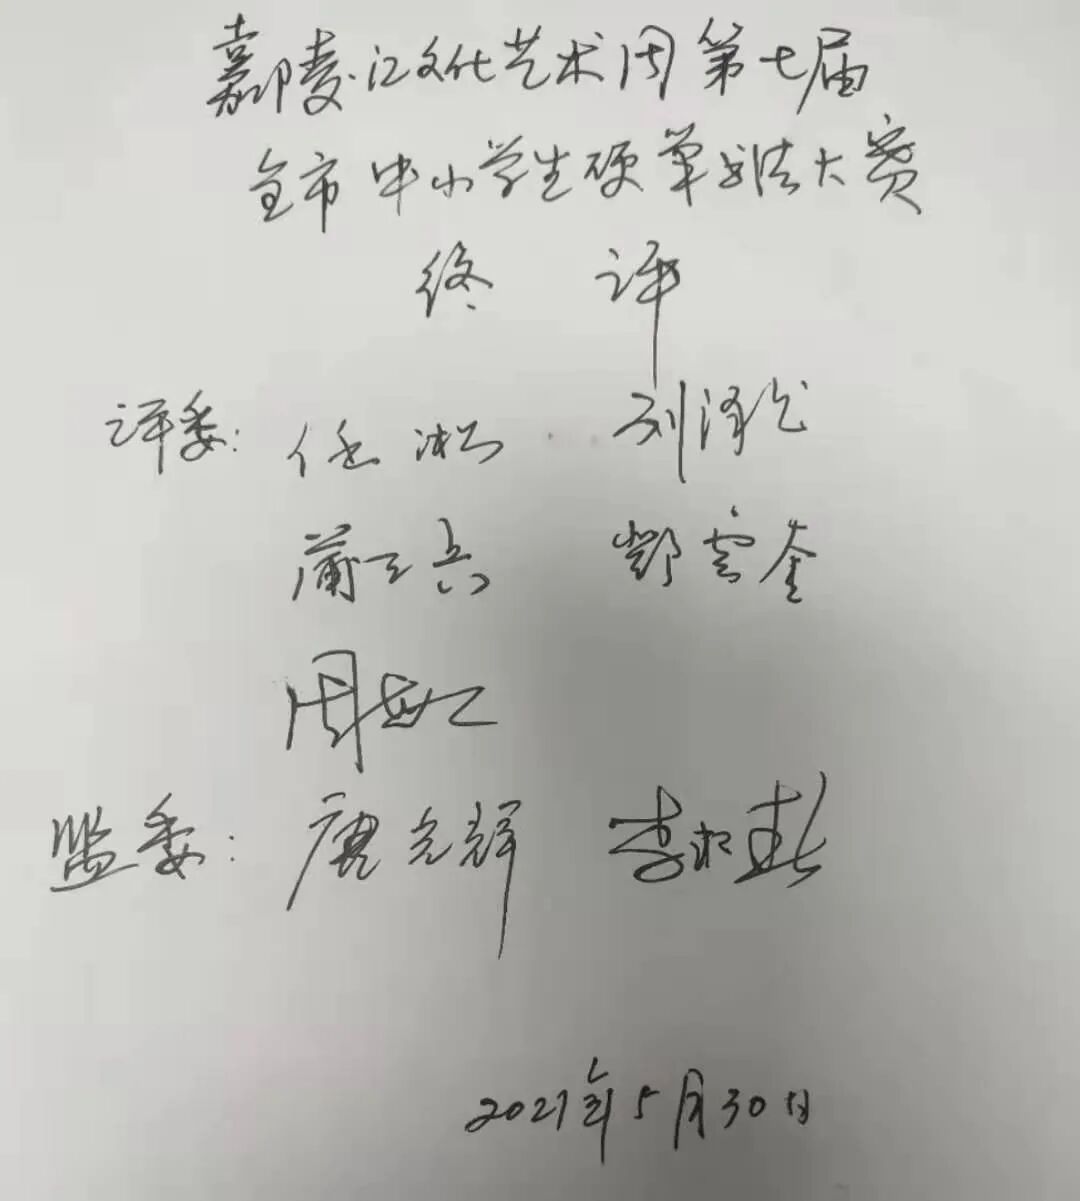 嘉陵江文化艺术周第七届
全市中小学生硬笔书法大赛
终 评
评委: 任淞 刘泽
蒲卫兵 邓云奎
周
监委: 唐光辉 李
2021年5月30日